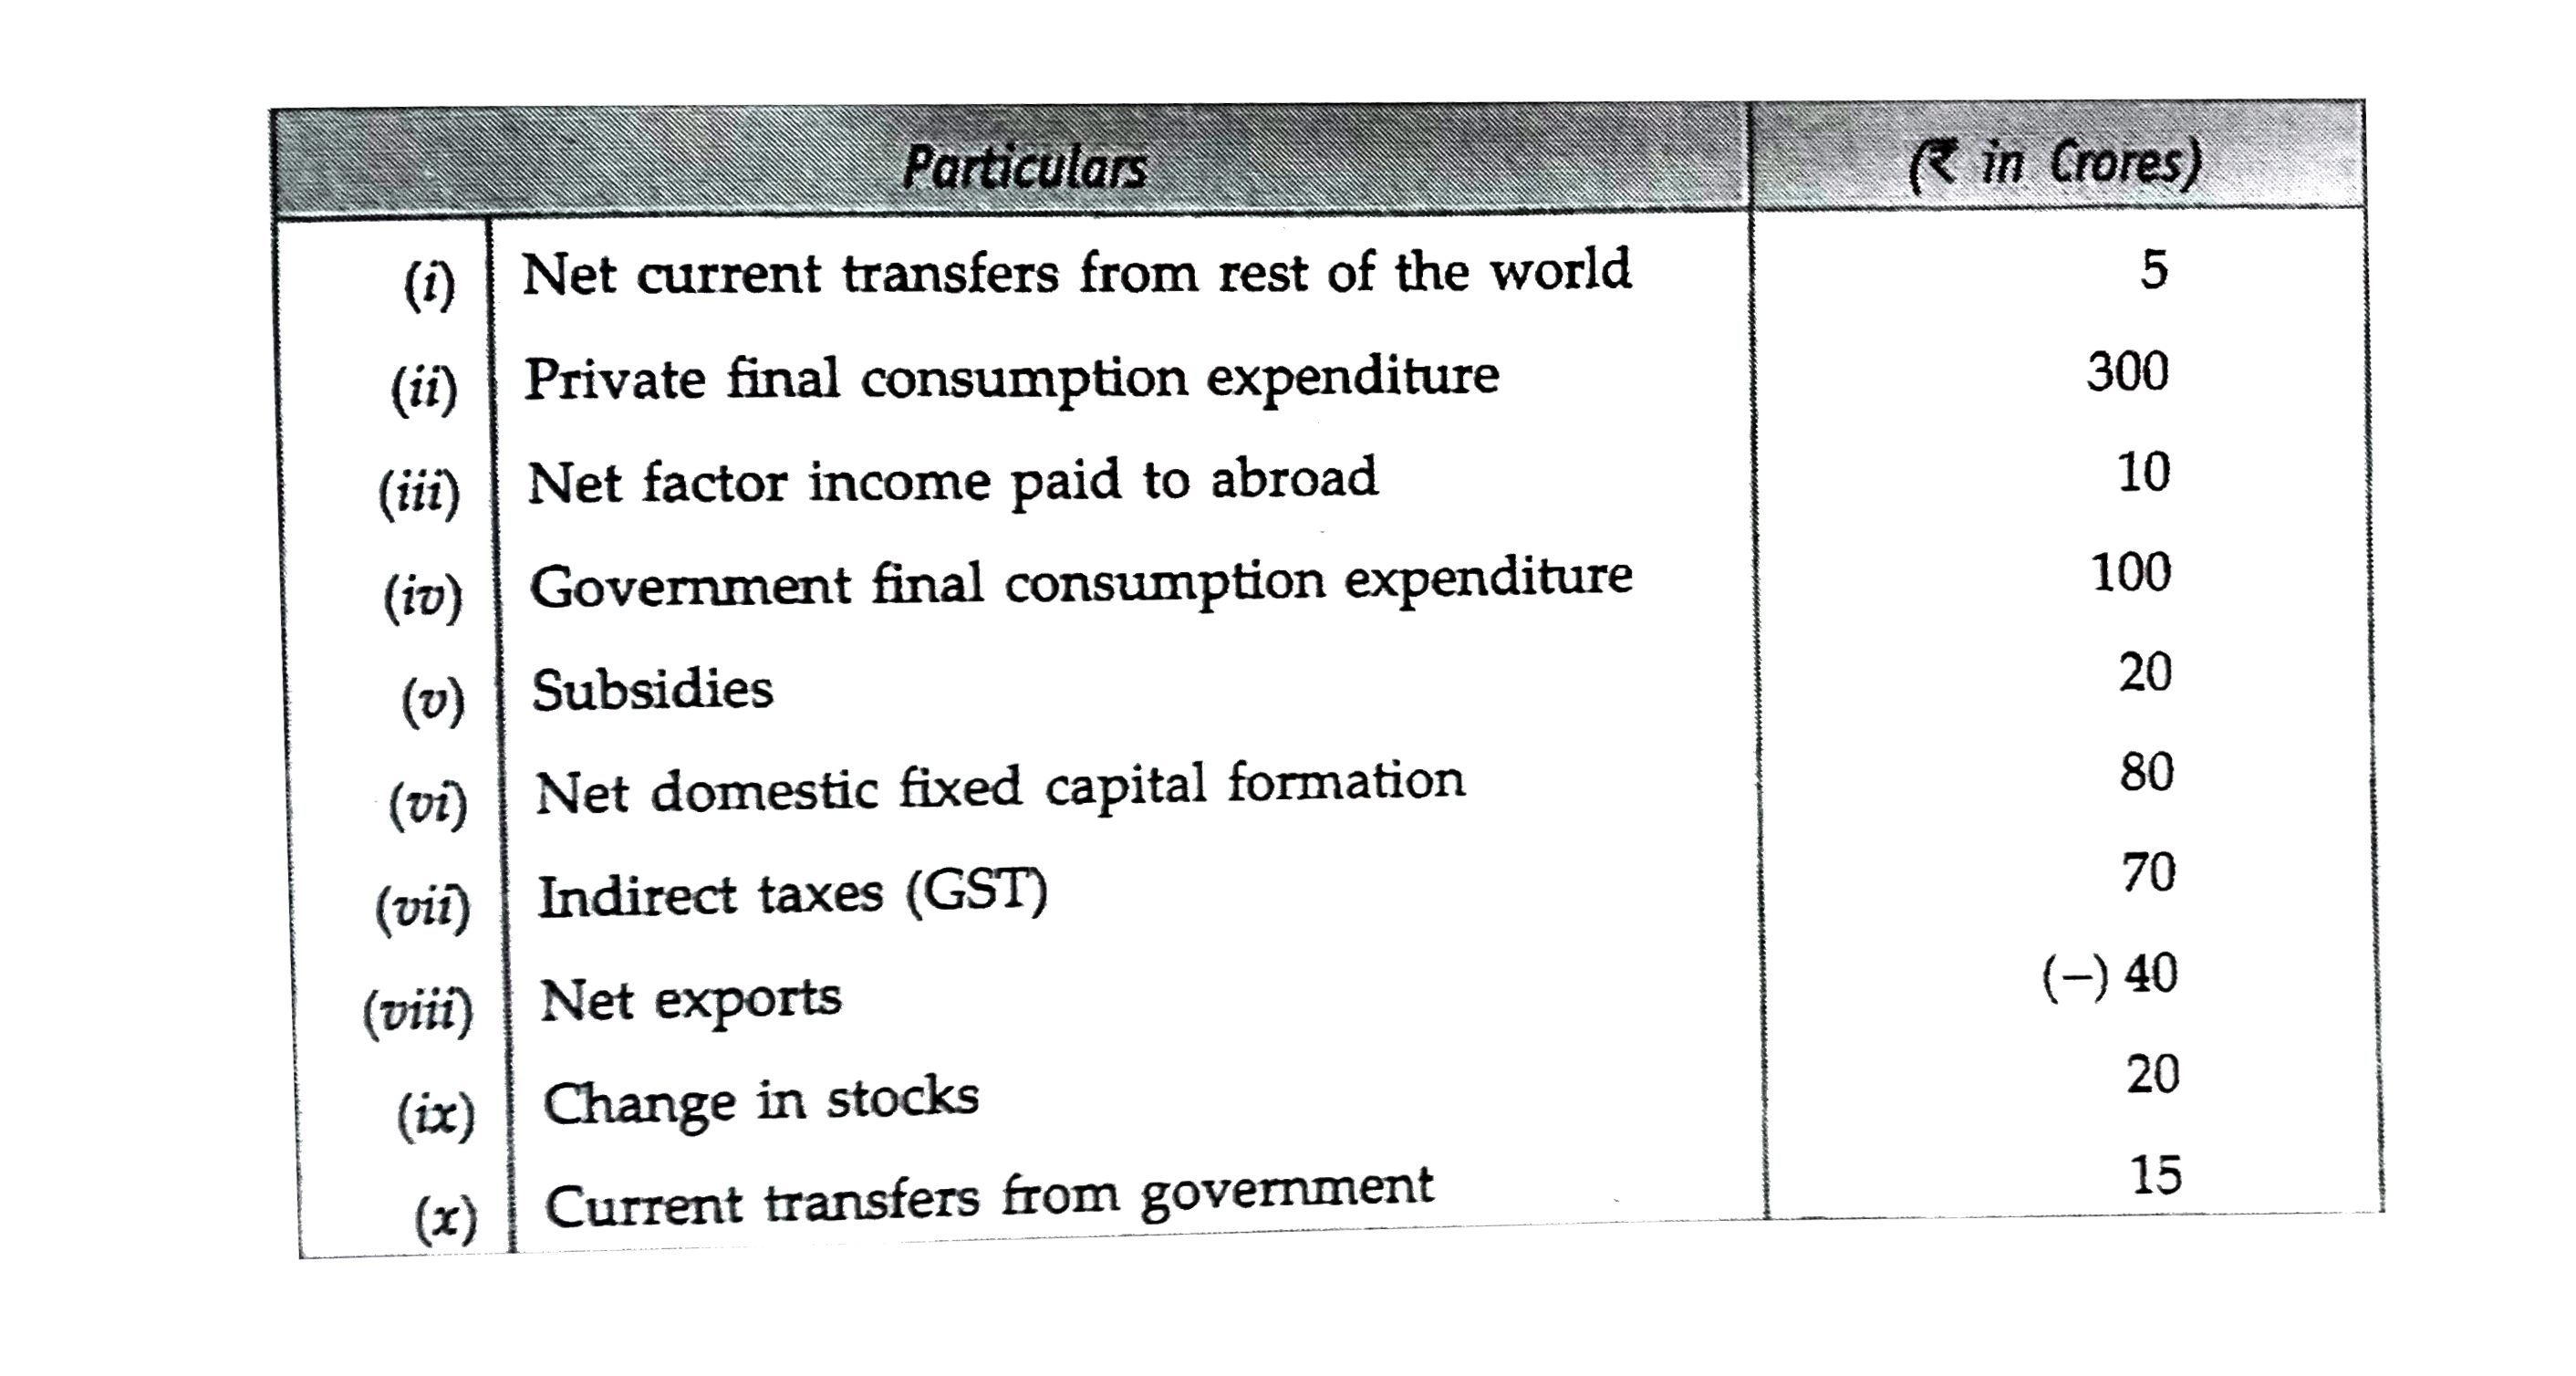 Particulars (₹ in Crores)
(i) Net current transfers from rest of the world 5
(ii) Private final consumption expenditure 300
(iii) Net factor income paid to abroad 10
(iv) Government final consumption expenditure 100
(v) Subsidies 20
(vi) Net domestic fixed capital formation 80
(vii) Indirect taxes (GST) 70
(viii) Net exports (–) 40
(ix) Change in stocks 20
(x) Current transfers from government 15